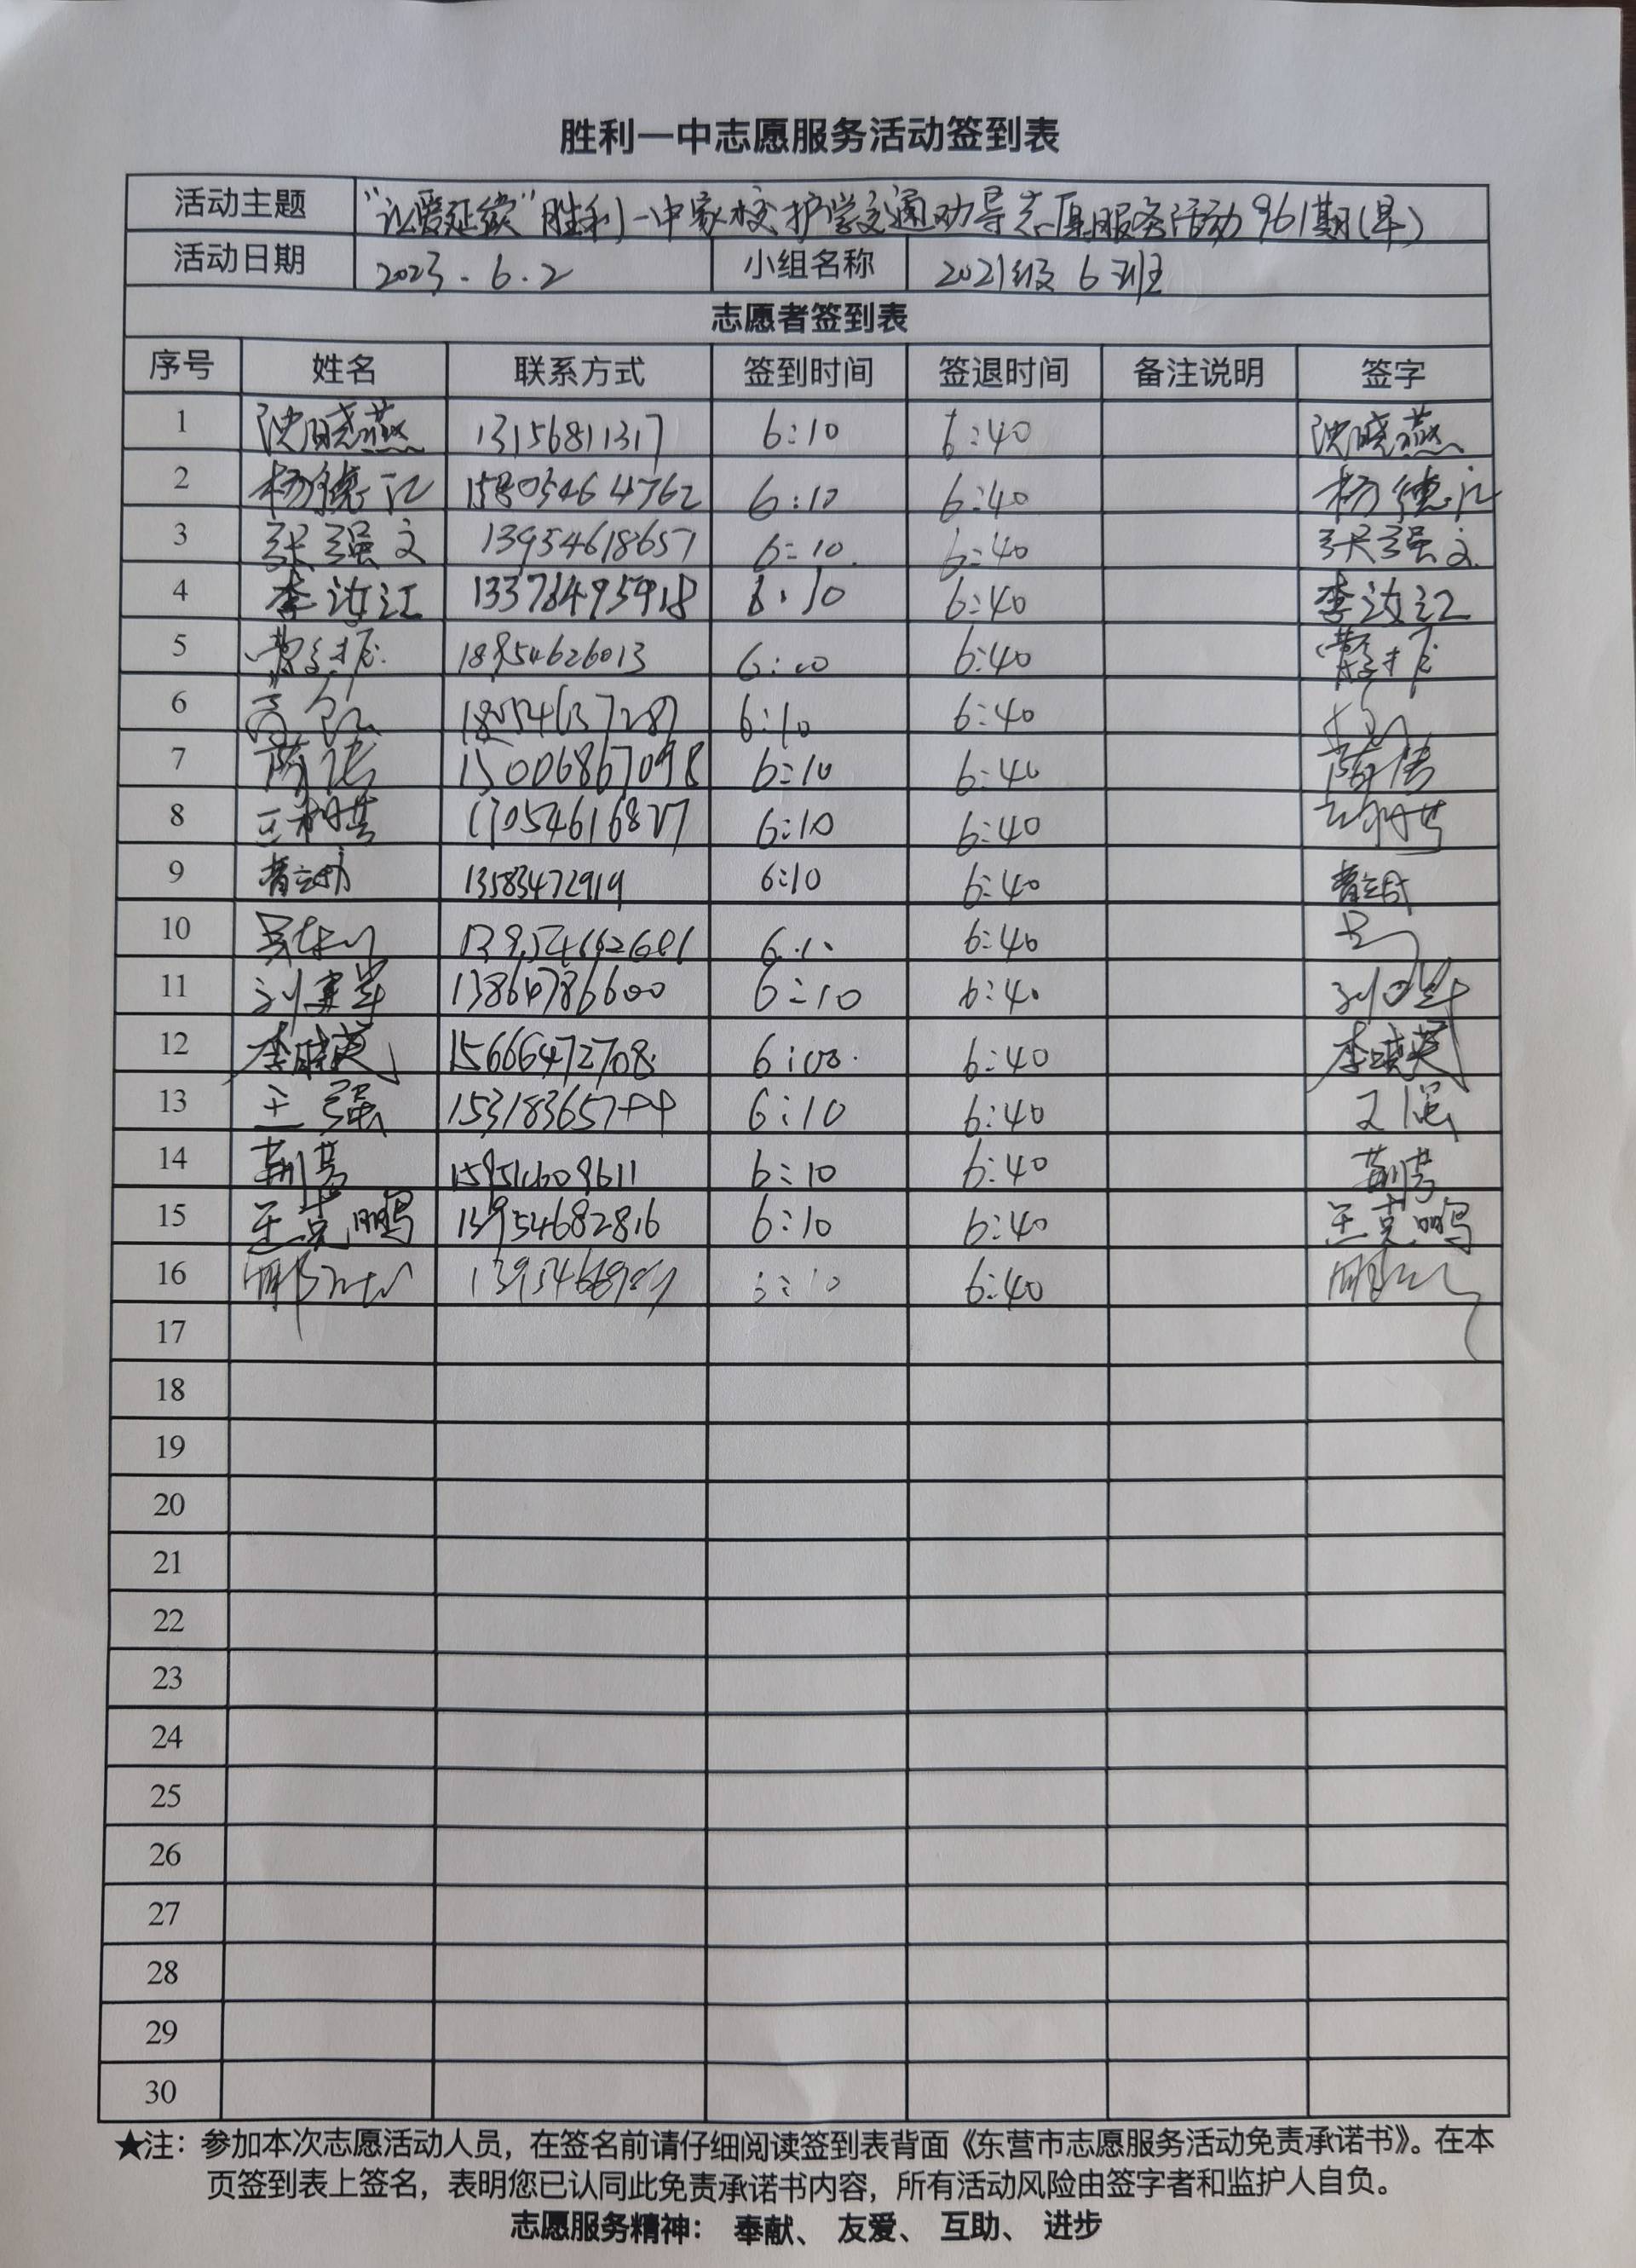 胜利一中志愿服务活动签到表
活动主题 “让爱延续”胜利一中家校护学交通劝导志愿服务活动961期(早)
活动日期 2023.6.2 小组名称 2021级6班
志愿者签到表
序号 姓名 联系方式 签到时间 签退时间 备注说明 签字
1 沈晓燕 13156811317 6:10 6:40 沈晓燕
2 杨德江 15805464762 6:10 6:40 杨德江
3 张强文 13954618657 6:10 6:40 张强文
4 李汝江 6:10 6:40 李汝江
5 18954626013 6:40
6 6:10 6:40
7 15006867098 6:10 6:40
8 6:10 6:40
9 13583472919 6:10 6:40
10 6:40
11 刘建军 13864786600 6:10 6:40
12 李晓英 15666472708 6:00 6:40 李晓英
13 王强 6:10 6:40 王强
14 荆芳 6:10 6:40 荆芳
15 王克鹏 13954682816 6:10 6:40 王克鹏
16 6:10 6:40
17
18
19
20
21
22
23
24
25
26
27
28
29
30
★注：参加本次志愿活动人员，在签名前请仔细阅读签到表背面《东营市志愿服务活动免责承诺书》。在本
页签到表上签名，表明您已认同此免责承诺书内容，所有活动风险由签字者和监护人自负。
志愿服务精神：奉献、友爱、互助、进步